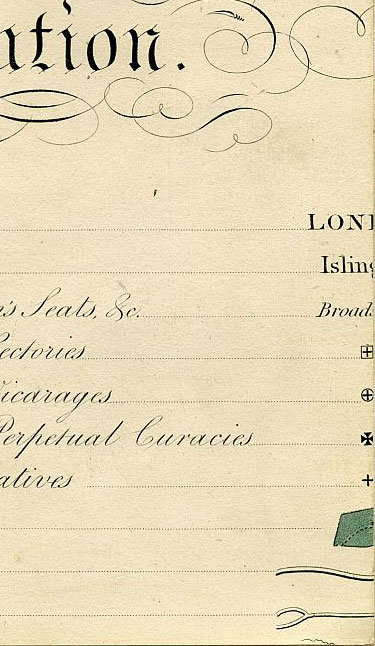 ation.
LON
Isling
n's Seats, &c. Broad
ectories
icarages
Perpetual Curacies
atives